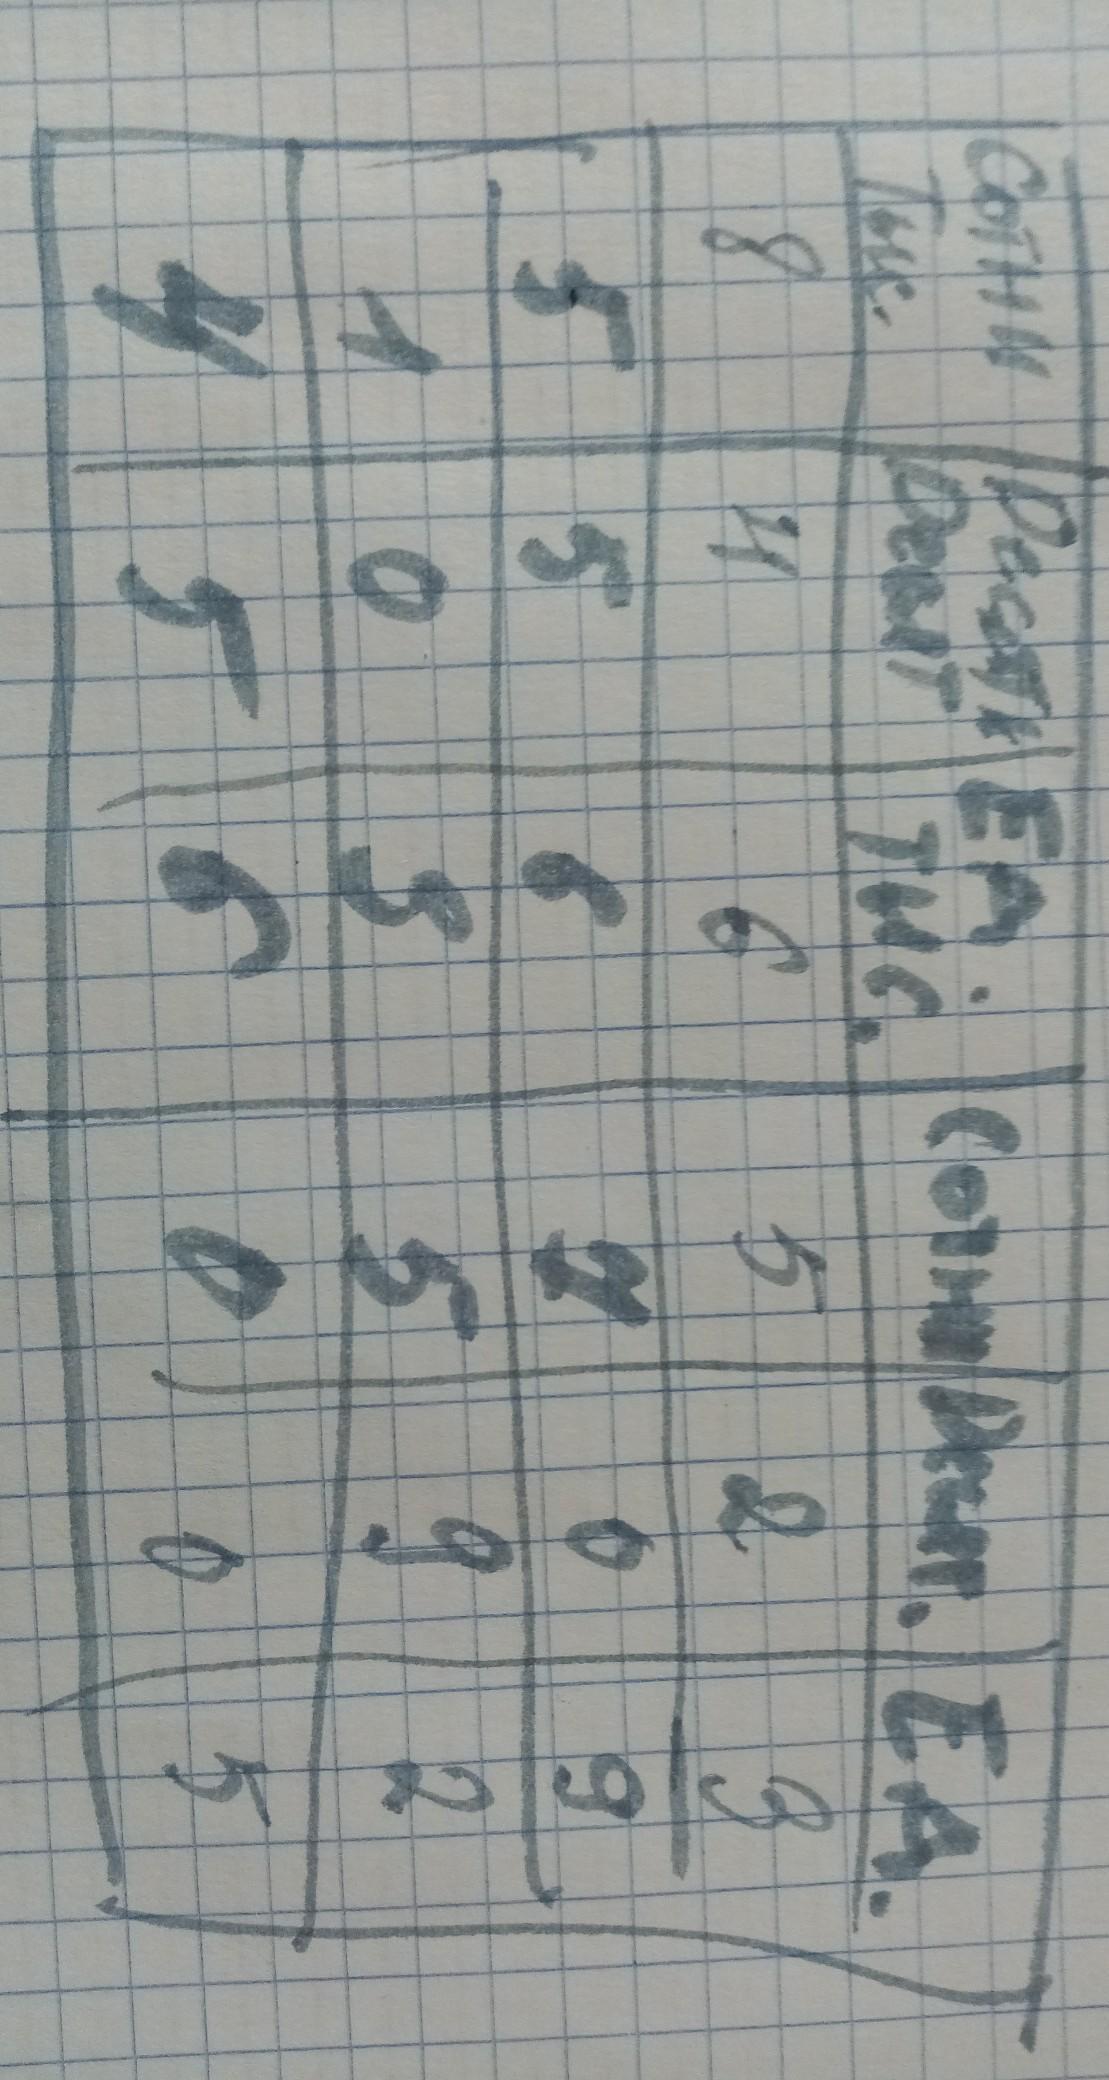 Сотни Десятк Ед. Сотни Десят. Ед.
Тыс. Десят Тыс.
8 4 6 5 2 3
5 5 6 7 0 9
1 0 5 5 9 2
4 5 6 0 0 5